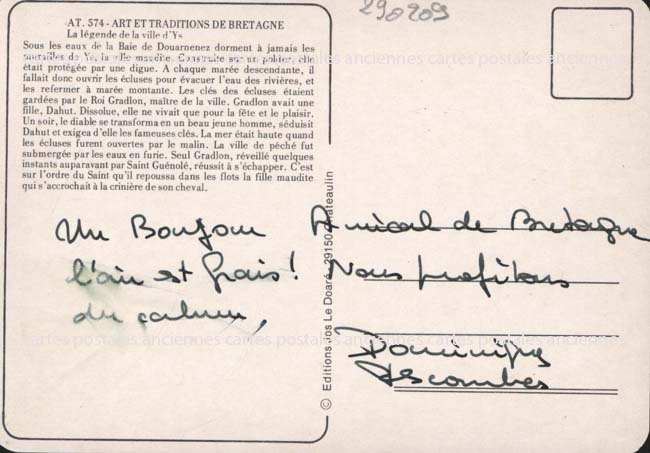 290209
AT. 574 - ART ET TRADITIONS DE BRETAGNE
La légende de la ville d'Ys
Sous les eaux de la Baie de Douarnenez dorment à jamais les
murailles de Ys, la ville maudite. Construite sur un polder, elle
était protégée par une digue. A chaque marée descendante, il
fallait donc ouvrir les écluses pour évacuer l'eau des rivières, et
les refermer à marée montante. Les clés des écluses étaient
gardées par le Roi Gradlon, maître de la ville. Gradlon avait une
fille, Dahut. Dissolue, elle ne vivait que pour la fête et le plaisir.
Un soir, le diable se transforma en un beau jeune homme, séduisit
Dahut et exigea d'elle les fameuses clés. La mer était haute quand
les écluses furent ouvertes par le malin. La ville de péché fut
submergée par les eaux en furie. Seul Gradlon, réveillé quelques
instants auparavant par Saint Guénolé, réussit à s'échapper. C'est
sur l'ordre du Saint qu'il repoussa dans les flots la fille maudite
qui s'accrochait à la crinière de son cheval.
cartes postales anciennes cartes postales anciennes cartes postales anciennes
Un Bonjour Amical de Bretagne
l'air est frais! Nous profitons
du calme,
cartes postales anciennes cartes postales anciennes cartes postales anciennes
Dominique
Descombes
© Editions Jos Le Doaré - 29150 Châteaulin